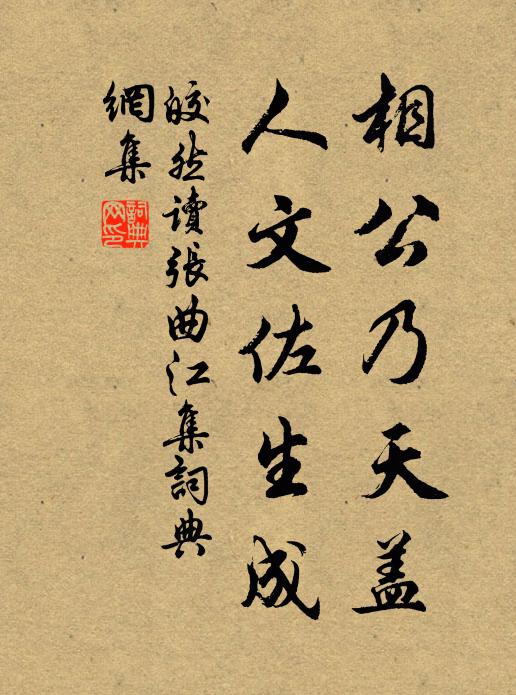 相公乃天盖
人文佐生成
皎然讀張曲江集詞典
網集
詞典網印